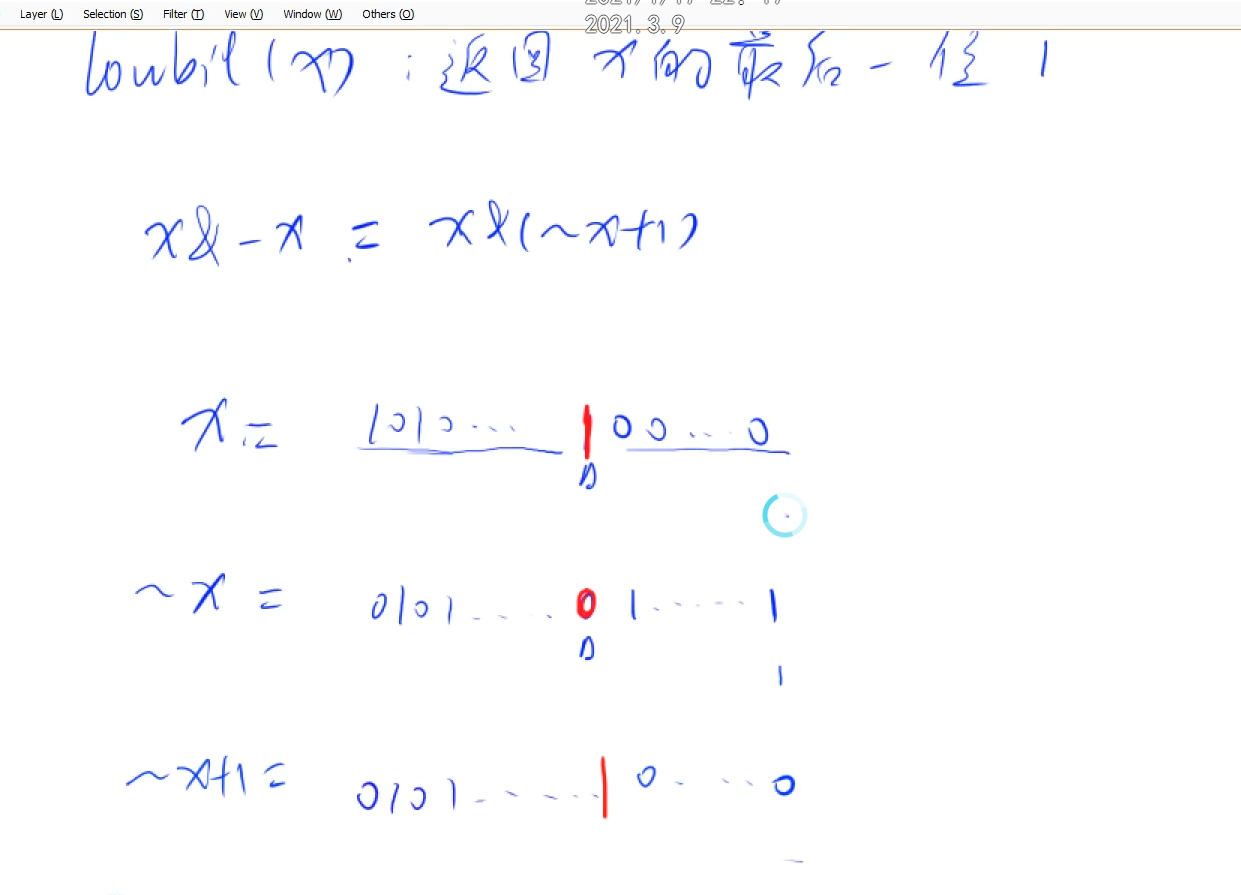 Layer (L) Selection (S) Filter (T) View (V) Window (W) Others (O)
2021.3.9
lowbit(x) : 返回 x 的最后一位 1
x&-x = x&(~x+1)
x = 1010... 100...0
~x = 0101.....01.....1
1
~x+1 = 0101.....10....0